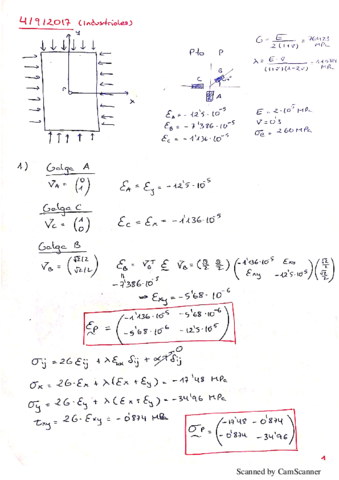 4/9/2017 (Industriales)
G = E / 2(1+ν) = 76923 MPa
Pto P
λ = E·ν / (1+ν)(1-2ν) =
y
x
P
B
C
A
ε_A = -12'5·10⁻⁵
ε_B = -7'386·10⁻⁵
ε_C = -1'136·10⁻⁵
E = 2·10⁵ MPa
ν = 0'3
σe = 260 MPa
1)
Galga A
V_A = (0 1)
ε_A = ε_y = -12'5·10⁻⁵
Galga C
V_C = (1 0)
ε_C = ε_x = -1'136·10⁻⁵
Galga B
V_B = (√2/2 √2/2)
ε_B = V_B^T ε V_B = (√2/2 √2/2) (-1'136·10⁻⁵ ε_xy ε_xy -12'5·10⁻⁵) (√2/2 √2/2)
-7'386·10⁻⁵
⇒ ε_xy = -5'68·10⁻⁶
ε_P = (-1'136·10⁻⁵ -5'68·10⁻⁶
-5'68·10⁻⁶ -12'5·10⁻⁵)
σij = 2G εij + λ εkk δij + αT δij 0
σx = 2G·εx + λ(εx+εy) = -17'48 MPa
σy = 2G·εy + λ(εx+εy) = -34'96 MPa
τxy = 2G·εxy = -0'874 MPa
σ_P = (-17'48 -0'874
-0'874 -34'96)
1
Scanned by CamScanner